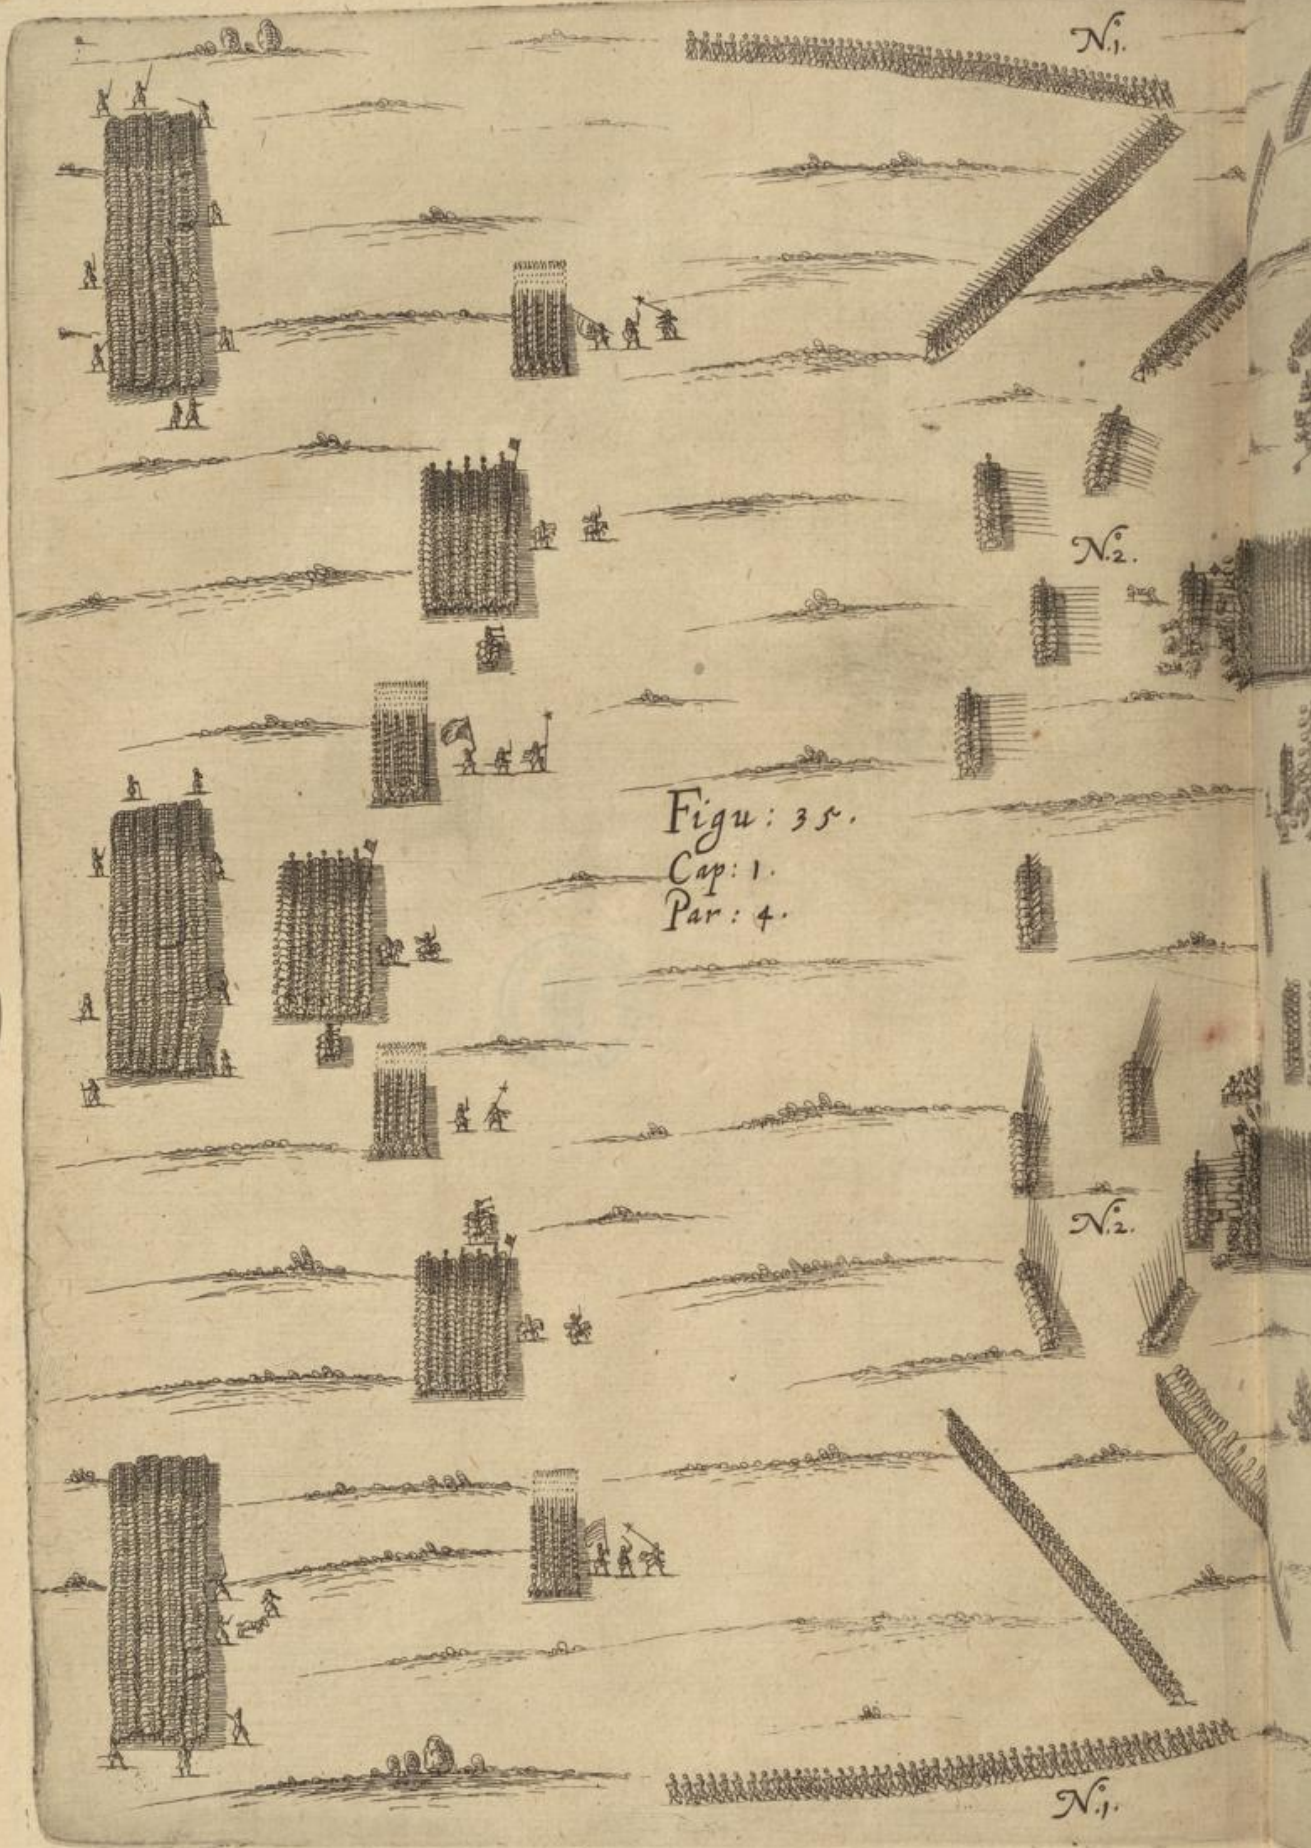 N.º1.
N.º2.
Figu: 35.
Cap: 1.
Par: 4.
N.º2.
N.º1.